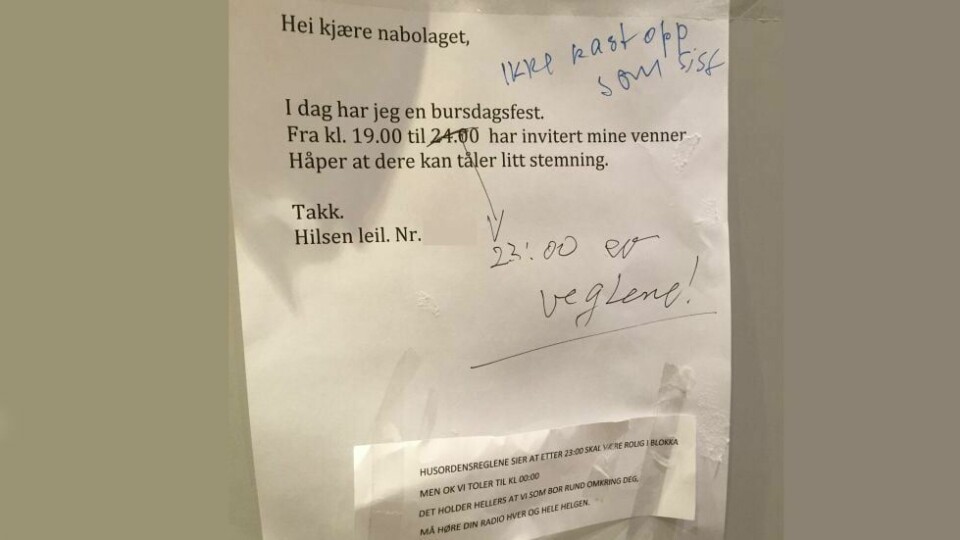 Hei kjære nabolaget,
Ikke kast opp
som sist
I dag har jeg en bursdagsfest.
Fra kl. 19.00 til 24.00 har invitert mine venner
Håper at dere kan tåler litt stemning.
Takk.
Hilsen leil. Nr.
23:00 er
reglene!
HUSORDENSREGLENE SIER AT ETTER 23:00 SKAL VÆRE ROLIG I BLOKKA
MEN OK VI TOLER TIL KL 00:00
DET HOLDER HELLERS AT VI SOM BOR RUND OMKRING DEG,
MÅ HØRE DIN RADIO HVER OG HELE HELGEN.